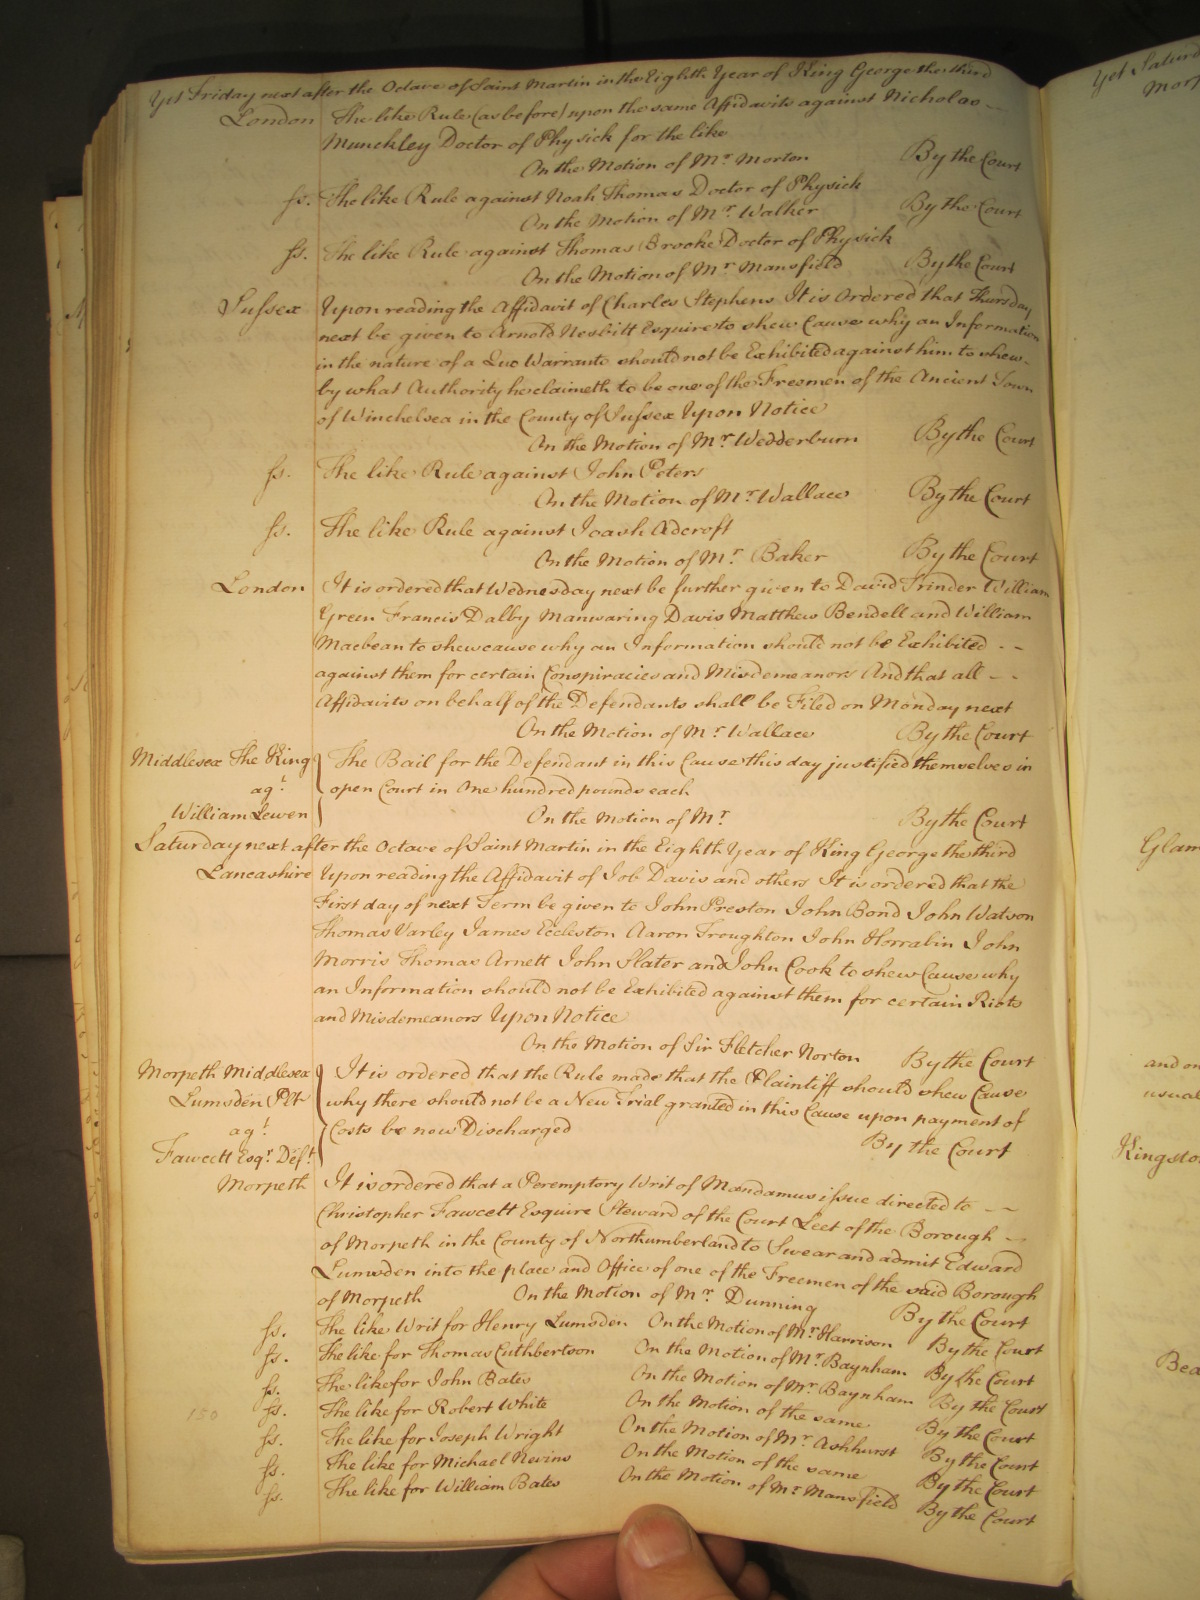 Yet Friday next after the Octave of Saint Martin in the Eighth Year of King George the third
London The like Rule (as before) upon the same Affidavits against Nicholas --
Munckley Doctor of Physick for the like
On the Motion of Mr. Morton By the Court
ss. The like Rule against Noah Thomas Doctor of Physick
On the Motion of Mr. Walker By the Court
ss. The like Rule against Thomas Brooke Doctor of Physick
On the Motion of Mr Mansfield By the Court
Sussex Upon reading the Affidavit of Charles Stephens It is Ordered that Thursday
next be given to Arnold Nesbitt Esquire to shew Cause why an Information
in the nature of a Quo Warranto should not be Exhibited against him to shew -
by what Authority he claimeth to be one of the Freemen of the Ancient Town
of Winchelsea in the County of Sussex Upon Notice
On the Motion of Mr. Wedderburn By the Court
ss. The like Rule against John Peters
On the Motion of Mr. Wallace By the Court
ss. The like Rule against Joash Adcroft
On the Motion of Mr. Baker By the Court
London It is ordered that Wednesday next be further given to David Trinder William
Green Francis Dalby Manwaring Davis Matthew Bendell and William
Macbean to shew cause why an Information should not be Exhibited --
against them for certain Conspiracies and Misdemeanors And that all --
Affidavits on behalf of the Defendants shall be Filed on Monday next
On the Motion of Mr. Wallace By the Court
Middlesex The King The Bail for the Defendant in this Cause this day justified themselves in
agt. open Court in One hundred pounds each
William Lewen On the Motion of Mr. By the Court
Saturday next after the Octave of Saint Martin in the Eighth Year of King George the third
Lancashire Upon reading the Affidavit of Job Davis and others It is ordered that the
First day of next Term be given to John Preston John Bond John Watson
Thomas Varley James Eccleston Aaron Troughton John Horrabin John
Morris Thomas Arnett John Slater and John Cook to shew Cause why
an Information should not be Exhibited against them for certain Riots
and Misdemeanors Upon Notice
On the Motion of Sir Fletcher Norton By the Court
Morpeth Middlesex It is ordered that the Rule made that the Plaintiff should shew Cause
Lumsden Plt why there should not be a New Trial granted in this Cause upon payment of
agt. Costs be now Discharged By the Court
Fawcett Esqr. Deft.
Morpeth It is ordered that a Peremptory Writ of Mandamus issue directed to --
Christopher Fawcett Esquire Steward of the Court Leet of the Borough -
of Morpeth in the County of Northumberland to Swear and admit Edward
Lumsden into the place and Office of one of the Freemen of the said Borough
of Morpeth On the Motion of Mr. Dunning By the Court
ss. The like Writ for Henry Lumsden On the Motion of Mr. Harrison By the Court
ss. The like for Thomas Cuthbertson On the Motion of Mr. Baynham By the Court
ss. The like for John Bates On the Motion of Mr. Baynham By the Court
ss. The like for Robert White On the Motion of the same By the Court
ss. The like for Joseph Wright On the Motion of Mr. Ashhurst By the Court
ss. The like for Michael Nevins On the Motion of the same By the Court
ss. The like for William Bates On the Motion of Mr. Mansfield By the Court
150
Yet Saturd
Morp
Glam
and on
usual
Kingsto
Bea